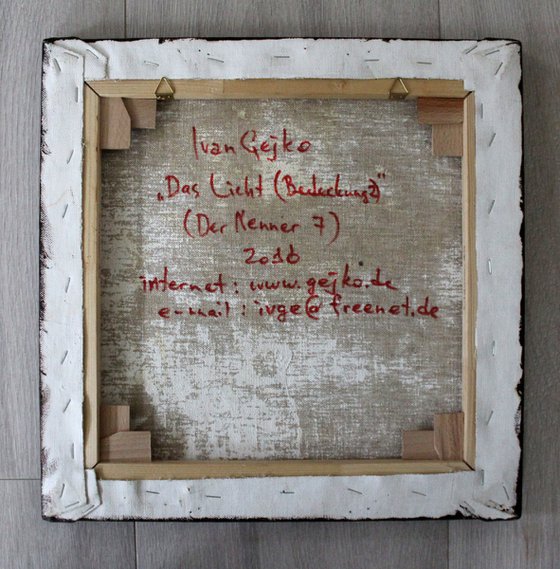 Ivan Gejko
„Das Licht (Bedeckung2)"
(Der Kenner 7)
2016
internet : www.gejko.de
e-mail : ivge@freenet.de